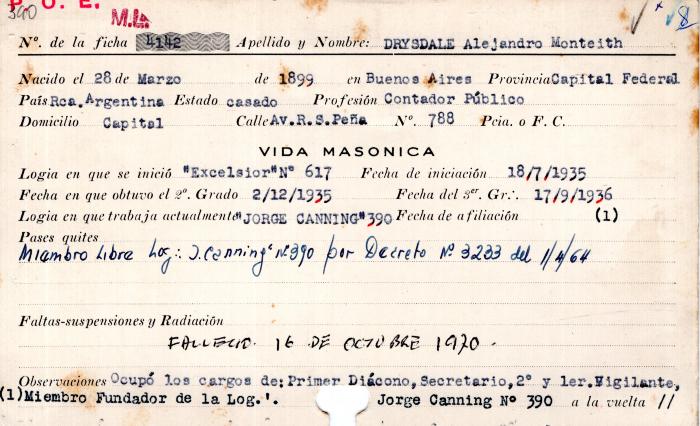 390 P. O. E.
M.L.
Nº. de la ficha 4142 Apellido y Nombre: DRYSDALE Alejandro Monteith
Nacido el 28 de Marzo de 1899 en Buenos Aires Provincia Capital Federal
País Rca. Argentina Estado casado Profesión Contador Público
Domicilio Capital Calle Av.R.S.Peña Nº. 788 Pcia. o F. C.
VIDA MASONICA
Logia en que se inició "Excelsior" Nº 617 Fecha de iniciación 18/7/1935
Fecha en que obtuvo el 2º. Grado 2/12/1935 Fecha del 3er. Gr∴ 17/9/1936
Logia en que trabaja actualmente "JORGE CANNING" 390 Fecha de afiliación (1)
Pases quites
Miembro Libre Log∴ J. Canning Nº 390 por Decreto Nº 3233 del 1/4/64
Faltas-suspensiones y Radiación
FALLECIO. 16 DE OCTUBRE 1970.
Observaciones Ocupó los cargos de: Primer Diácono, Secretario, 2º y 1er. Vigilante,
(1) Miembro Fundador de la Log.'. Jorge Canning Nº 390 a la vuelta //